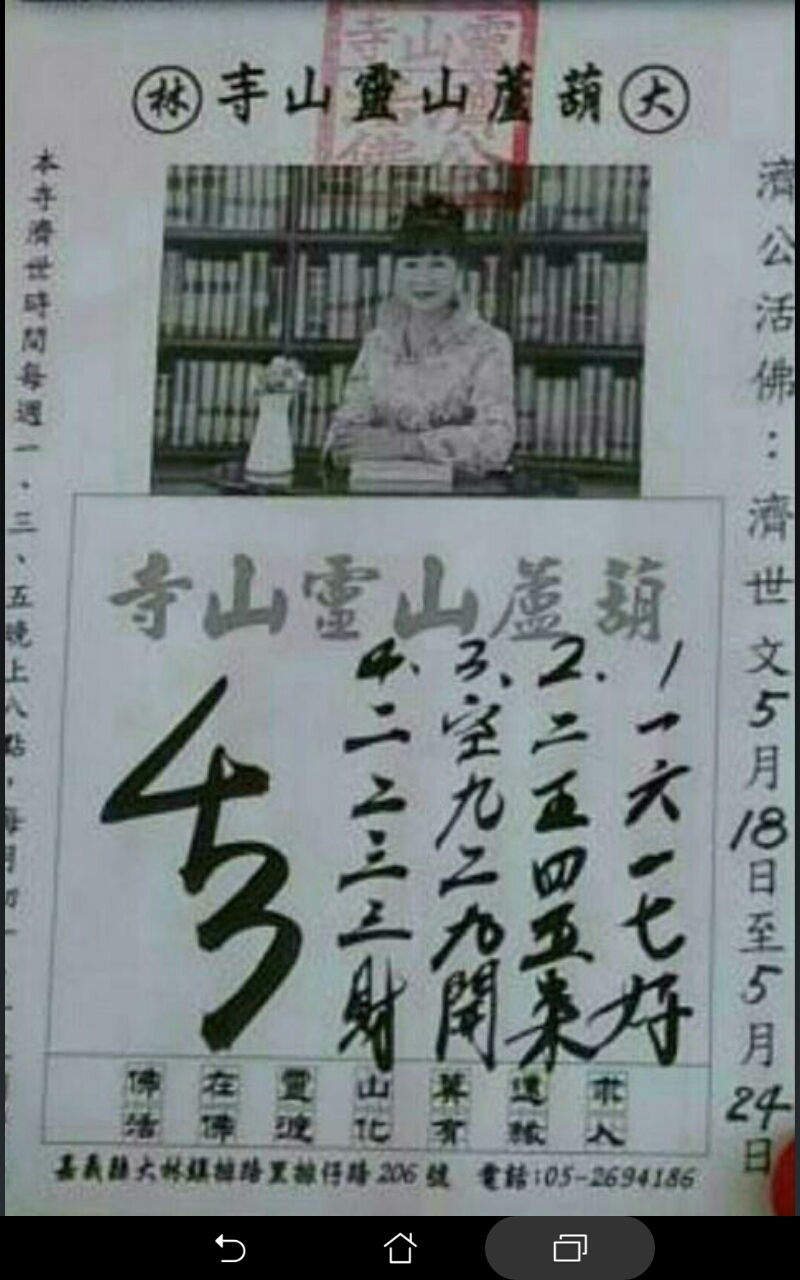 大葫蘆山靈山寺林
濟公活佛：濟世文5月18日至5月24日
葫蘆山靈山寺
1 一六一七好
2. 二五四五來
3、空九二九開
4、二二三三財
佛在靈山
活佛渡化有
人
嘉義縣大林鎮排路里排仔路206號 電話:05-2694186
本寺濟世時間每週一、三、五晚上八點，每月初一